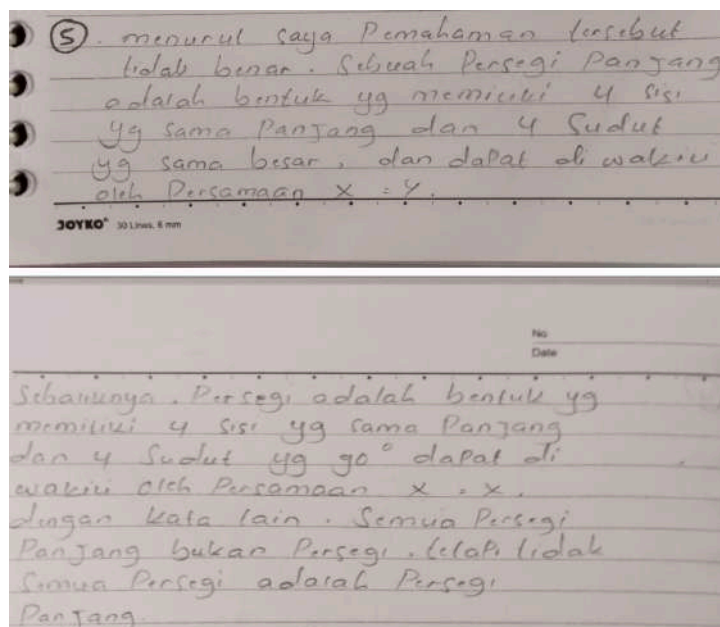 5. menurut saya Pemahaman tersebut
tidak benar. Sebuah Persegi Panjang
adalah bentuk yg memiliki 4 sisi
yg sama Panjang dan 4 Sudut
yg sama besar, dan dapat di wakili
oleh Persamaan x = y.
JOYKO 30 Lines, 6 mm
No
Date
Sebaliknya. Persegi adalah bentuk yg
memiliki 4 sisi yg sama Panjang
dan 4 Sudut yg 90° dapat di
wakili oleh Persamaan x . x.
dengan kata lain. Semua Persegi
Panjang bukan Persegi. tetapi tidak
Semua Persegi adalah Persegi
Panjang.